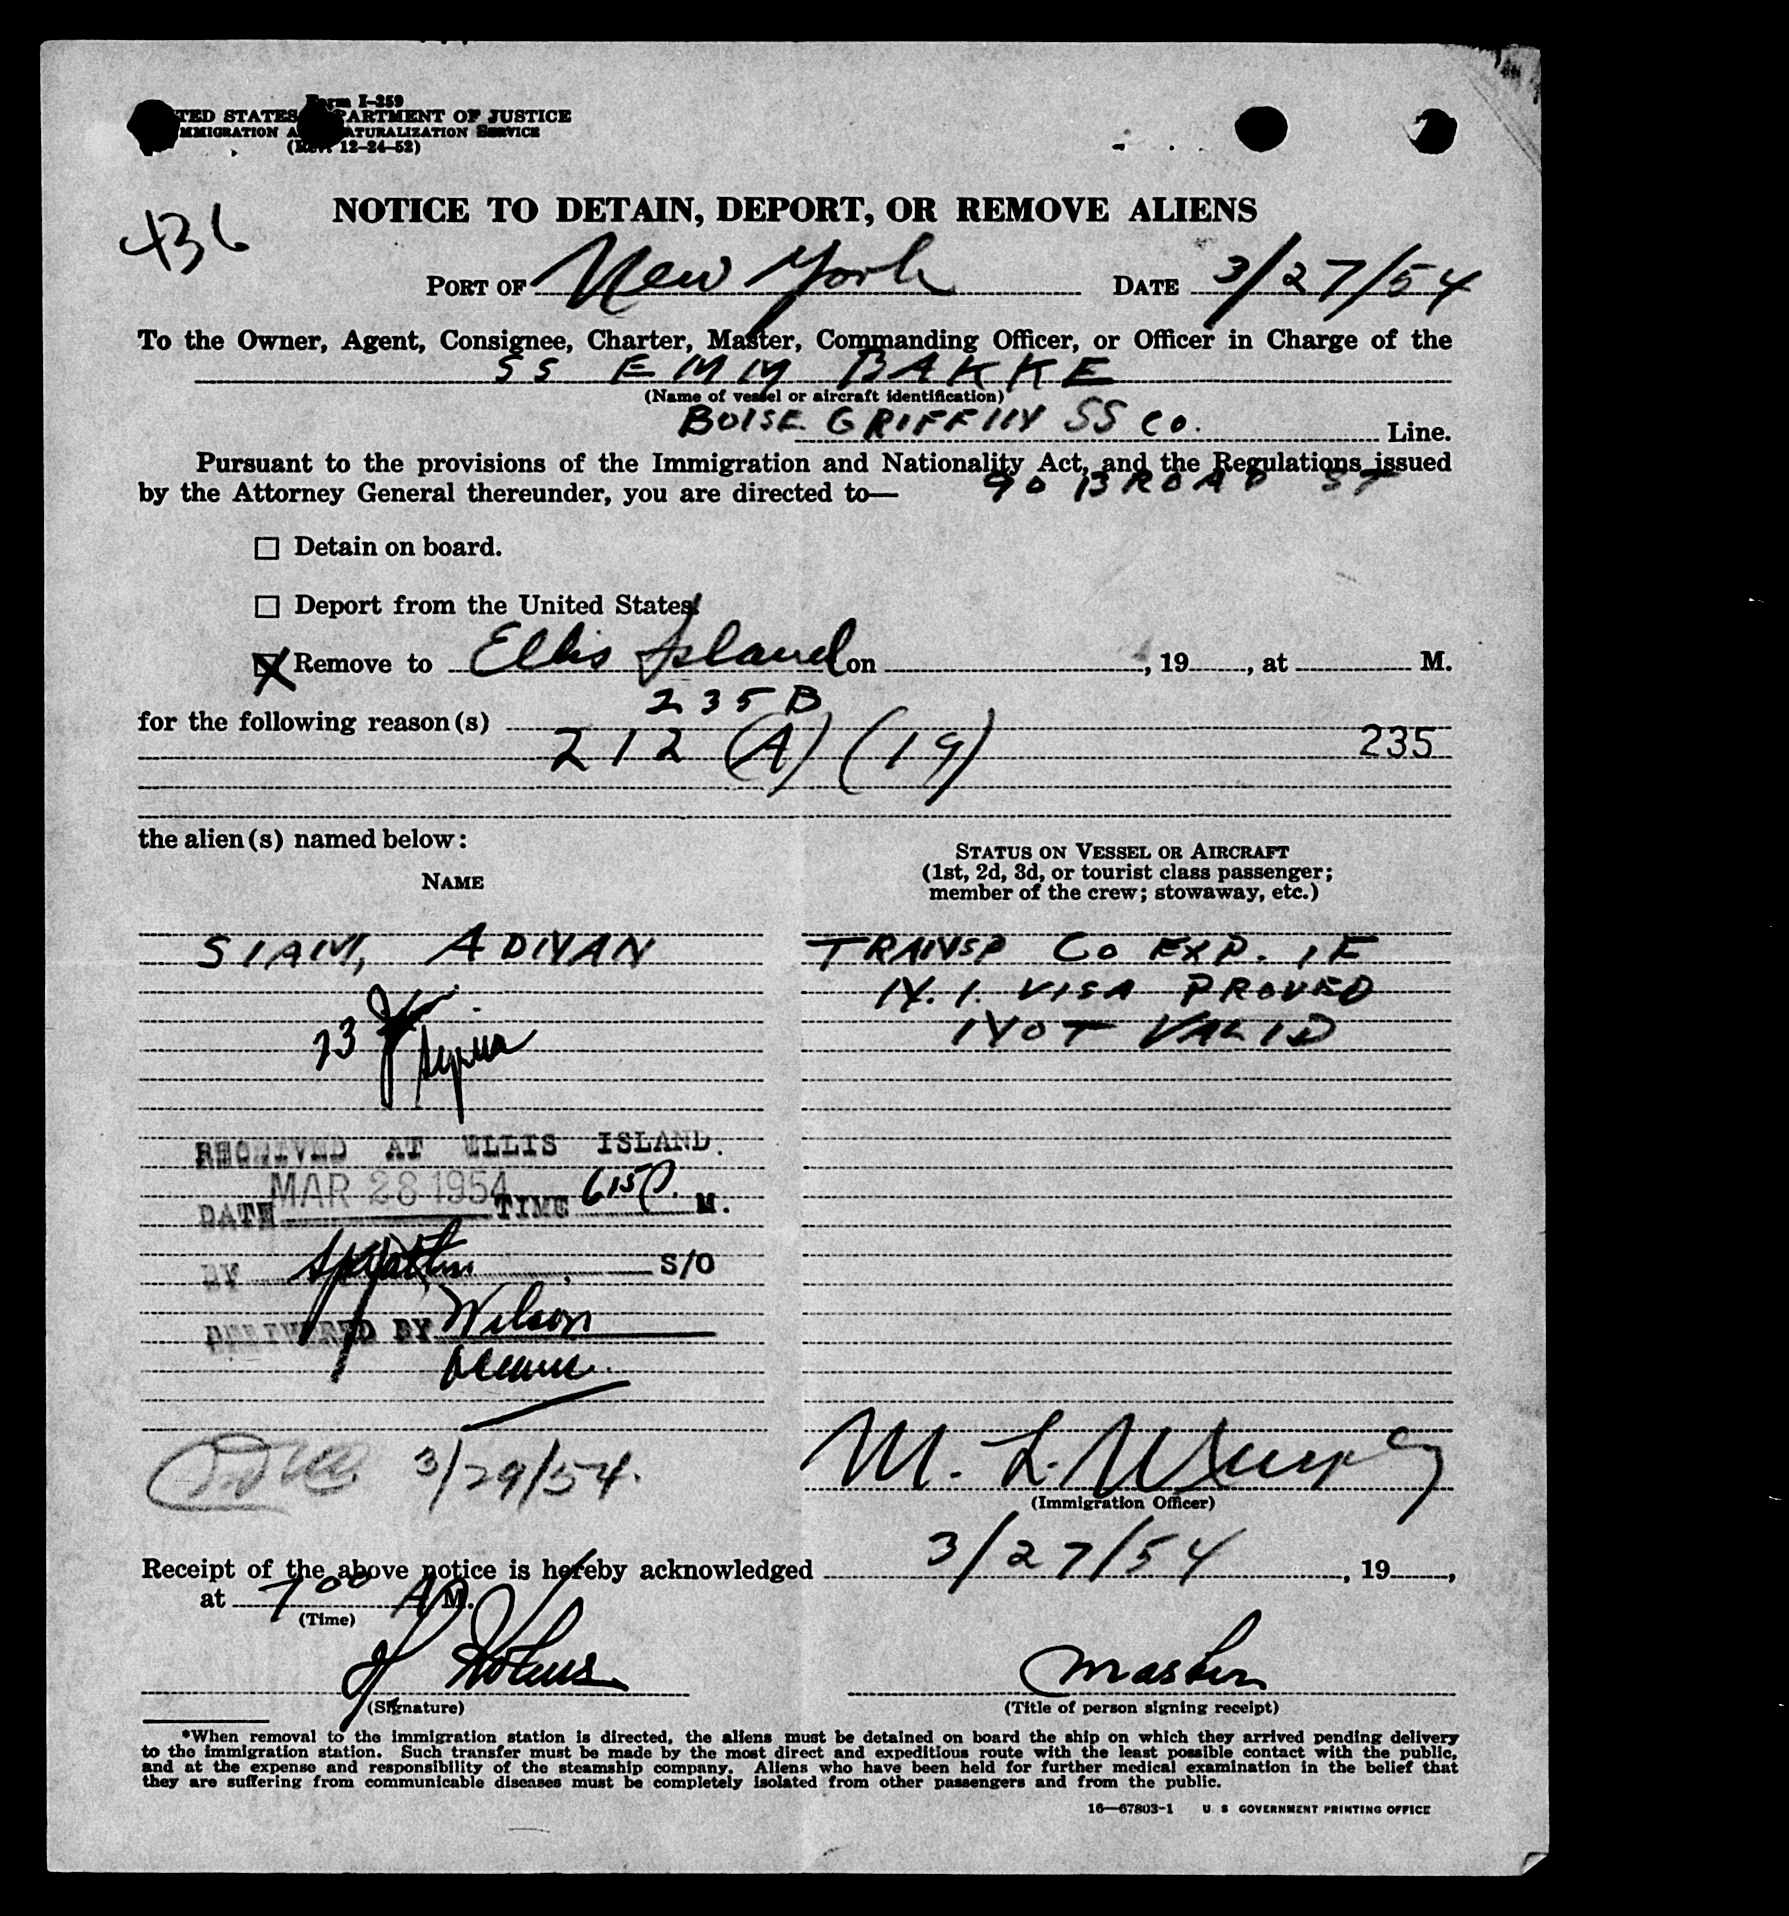 Form I-259
UNITED STATES DEPARTMENT OF JUSTICE
IMMIGRATION AND NATURALIZATION SERVICE
(Rev. 12-24-52)
436
NOTICE TO DETAIN, DEPORT, OR REMOVE ALIENS
PORT OF New York DATE 3/27/54
To the Owner, Agent, Consignee, Charter, Master, Commanding Officer, or Officer in Charge of the
SS EMM BAKKE
(Name of vessel or aircraft identification)
BOISE GRIFFIN SS CO. Line.
Pursuant to the provisions of the Immigration and Nationality Act, and the Regulations issued
by the Attorney General thereunder, you are directed to— 90 BROAD ST
Detain on board.
Deport from the United States.
X Remove to Ellis Island on , 19 , at M.
235 B
for the following reason(s)
212 (A) (19) 235
the alien(s) named below:
NAME
STATUS ON VESSEL OR AIRCRAFT
(1st, 2d, 3d, or tourist class passenger;
member of the crew; stowaway, etc.)
SIAM, ADNAN TRANSP CO EXP. IE
N.I. VISA PROVED
NOT VALID
23 Syria
RECEIVED AT ELLIS ISLAND.
DATE MAR 28 1954 TIME 615 P. M.
BY S/O
DELIVERED BY Wilson
3/29/54.
M. L.
(Immigration Officer)
Receipt of the above notice is hereby acknowledged 3/27/54, 19 ,
at 7 00 A M.
(Time)
Master
(Signature)
(Title of person signing receipt)
*When removal to the immigration station is directed, the aliens must be detained on board the ship on which they arrived pending delivery
to the immigration station. Such transfer must be made by the most direct and expeditious route with the least possible contact with the public,
and at the expense and responsibility of the steamship company. Aliens who have been held for further medical examination in the belief that
they are suffering from communicable diseases must be completely isolated from other passengers and from the public.
16—67803-1 U. S. GOVERNMENT PRINTING OFFICE